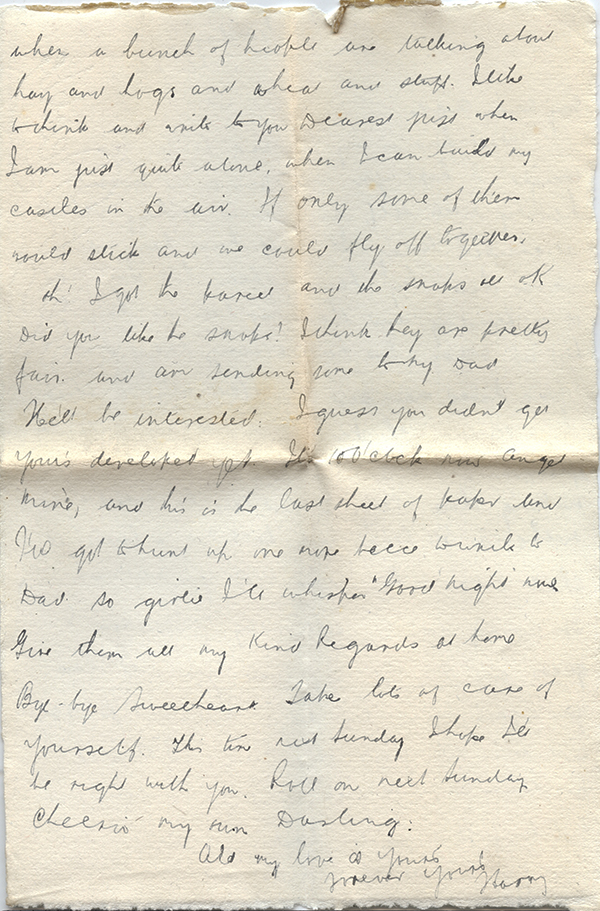 when a bunch of people are talking about
hay and hogs and wheat and stuff. I like
to think and write to you Dearest just when
I am just quite alone, when I can build my
castles in the air. If only some of them
would stick and we could fly off together.
Oh! I got the parcel and the snaps all OK
Did you like the snaps? I think they are pretty
fair. and am sending some to my Dad
He'll be interested. I guess you didn't get
yours developed yet. It's 10 O'clock now angel
mine, and this is the last sheet of paper and
I've got to hunt up one more piece to write to
Dad. so girlie I'll whisper "Good Night now
Give them all my Kind Regards at home
Bye-bye Sweetheart. Take lots of care of
yourself. This time next Sunday I hope I'll
be right with you. Roll on next Sunday
Cheerio my own Darling.
All my love is yours
forever yours Harry